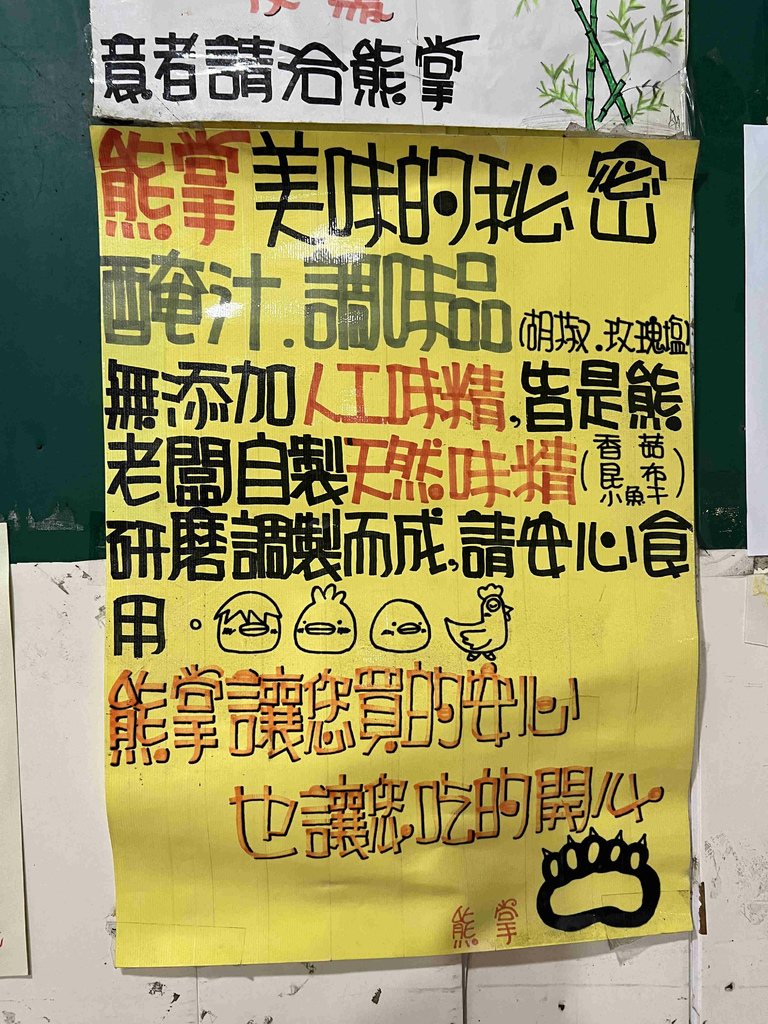 意者請洽熊掌
熊掌美味的秘密
醃汁.調味品(胡椒.玫瑰塩)
無添加人工味精,皆是熊
老闆自製天然味精(香菇昆布小魚干)
研磨調製而成,請安心食
用。
熊掌讓您買的安心
也讓您吃的開心
熊掌